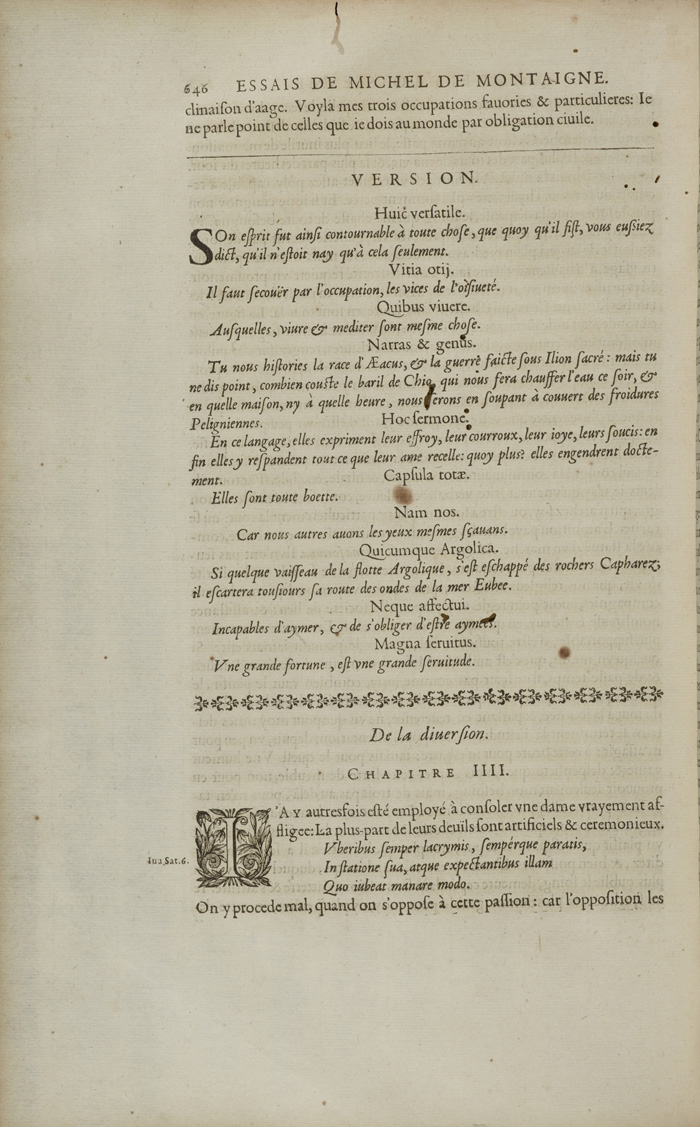 646 ESSAIS DE MICHEL DE MONTAIGNE.
clinaiſon d'aage. Voyla mes trois occupations fauories & particulieres: Ie
ne parle point de celles que ie dois au monde par obligation ciuile.
VERSION.
Huic verſatile.
SOn eſprit fut ainſi contournable à toute choſe, que quoy qu'il fiſt, vous euſſiez
dict, qu'il n'eſtoit nay qu'à cela ſeulement.
Vitia otij.
Il faut ſecouër par l'occupation, les vices de l'oiſiueté.
Quibus viuere.
Auſquelles, viure & mediter ſont meſme choſe.
Narras & genus.
Tu nous hiſtories la race d'Æacus, & la guerre faicte ſous Ilion ſacré: mais tu
ne dis point, combien couſte le baril de Chio, qui nous fera chauffer l'eau ce ſoir, &
en quelle maiſon, ny à quelle heure, nous ſerons en ſoupant à couuert des froidures
Peligniennes. Hoc ſermone.
En ce langage, elles expriment leur effroy, leur courroux, leur ioye, leurs ſoucis: en
fin elles y reſpandent tout ce que leur ame recelle: quoy plus? elles engendrent docte-
ment. Capſula totæ.
Elles ſont toute boette.
Nam nos.
Car nous autres auons les yeux meſmes ſçauans.
Quicumque Argolica.
Si quelque vaiſſeau de la flotte Argolique, s'eſt eſchappé des rochers Capharez,
il eſcartera touſiours ſa route des ondes de la mer Eubee.
Neque affectui.
Incapables d'aymer, & de s'obliger d'eſtre aymees.
Magna ſeruitus.
Vne grande fortune, eſt vne grande ſeruitude.
De la diuerſion.
CHAPITRE IIII.
I'AY autresfois eſté employé à conſoler vne dame vrayement af-
fligee: La plus-part de leurs deuils ſont artificiels & ceremonieux.
Vberibus ſemper lacrymis, ſempérque paratis,
Iuu. Sat. 6. In ſtatione ſua, atque expectantibus illam
Quo iubeat manare modo.
On y procede mal, quand on s'oppoſe à cette paſſion: car l'oppoſition les